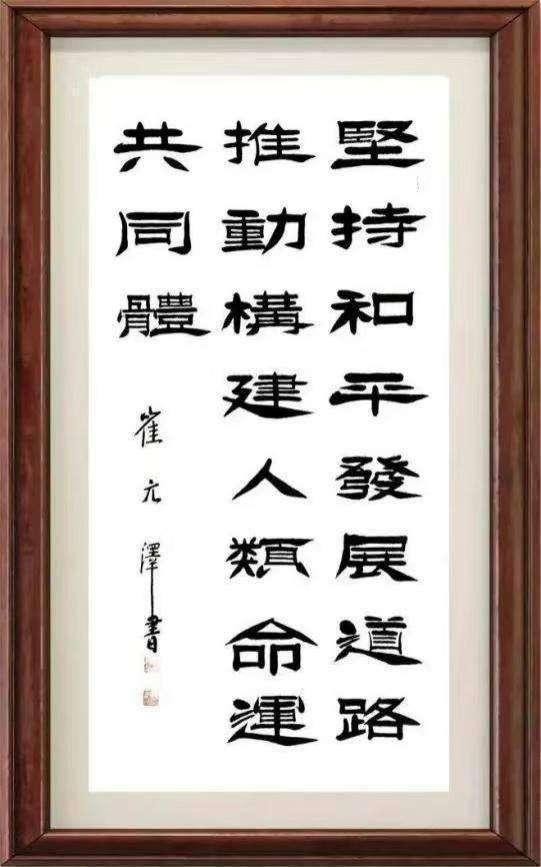 堅持和平發展道路
推動構建人類命運
共同體
崔元澤書